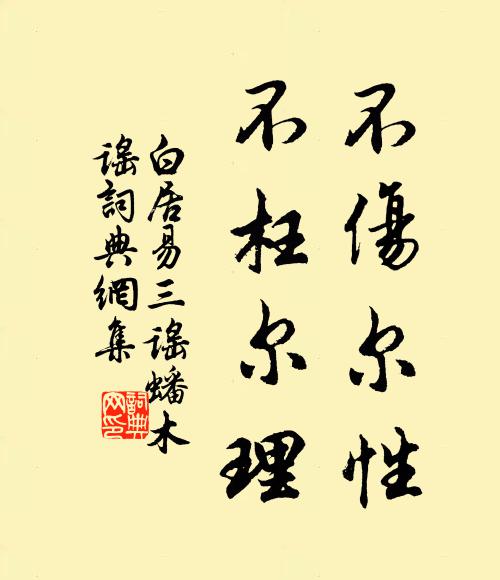 不傷尔性
不枉尔理
白居易三謠蟠木
謠詞典網集
詞典
网印